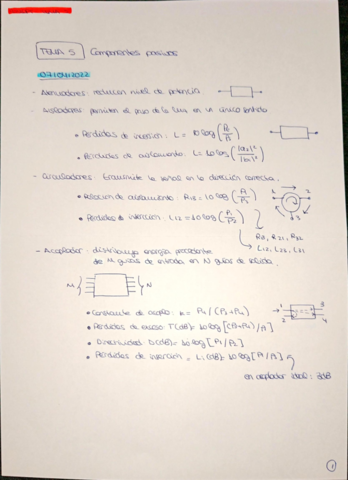 TEMA 5 Componentes pasivos
07/04/2022
- Atenuadores: reducen nivel de potencia
- Aisladores: permiten el paso de la luz en un único sentido
• Pérdidas de inserción: L = 10 log
• Pérdidas de aislamiento: L = 10 log
- Circuladores: transmite la señal en la dirección correcta.
• Relación de aislamiento: R13 = 10 log (P1/P3)
1 2
3
• Pérdidas de inserción: L12 = 10 log (P1/P2)
- Acoplador: distribuye energía procedente
de M guías de entrada en N guías de salida.
M N
• Constante de acoplo: k = P4 / (P3+P4)
1 3
2 4
• Pérdidas de exceso: T(dB) = 10 log [(P3+P4)/P1]
• Directividad: D(dB) = 10 log [P1/P2]
• Pérdidas de inserción = L(dB) = 10 log
en acoplador ideal: 3dB
1